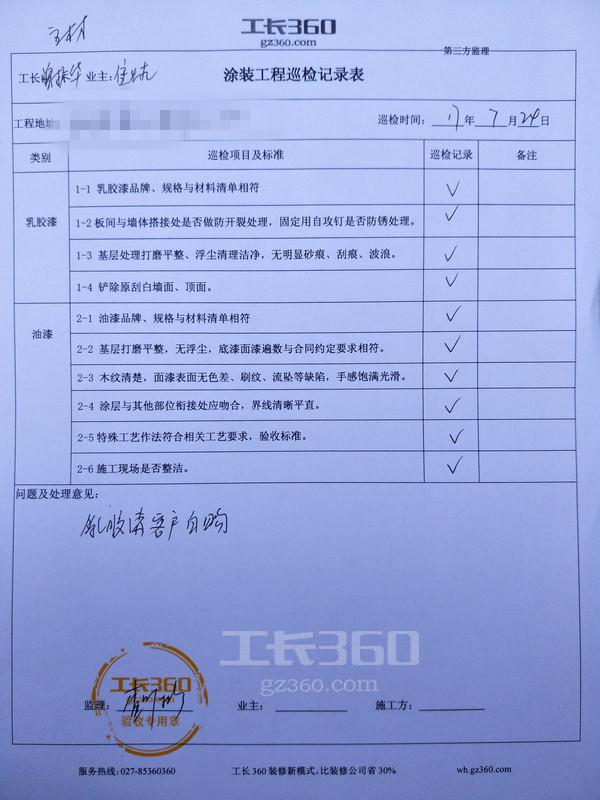 主材
工长360
gz360.com
第三方监理
工长 业主:
涂装工程巡检记录表
工程地址 巡检时间: 17年 7月24日
类别 巡检项目及标准 巡检记录 备注
乳胶漆
1-1 乳胶漆品牌、规格与材料清单相符 ✓
1-2板间与墙体搭接处是否做防开裂处理，固定用自攻钉是否防锈处理。 ✓
1-3 基层处理打磨平整、浮尘清理洁净，无明显砂痕、刮痕、波浪。 ✓
1-4 铲除原刮白墙面、顶面。 ✓
油漆
2-1 油漆品牌、规格与材料清单相符 ✓
2-2 基层打磨平整，无浮尘，底漆面漆遍数与合同约定要求相符。 ✓
2-3 木纹清楚，面漆表面无色差、刷纹、流坠等缺陷，手感饱满光滑。 ✓
2-4 涂层与其他部位衔接处应吻合，界线清晰平直。 ✓
2-5特殊工艺作法符合相关工艺要求，验收标准。 ✓
2-6施工现场是否整洁。 ✓
问题及处理意见:
乳胶漆客户自购
工长360
gz360.com
工长360
验收专用章
监理: 业主: 施工方:
服务热线:027-85360360 工长360装修新模式,比装修公司省30% wh.gz360.com